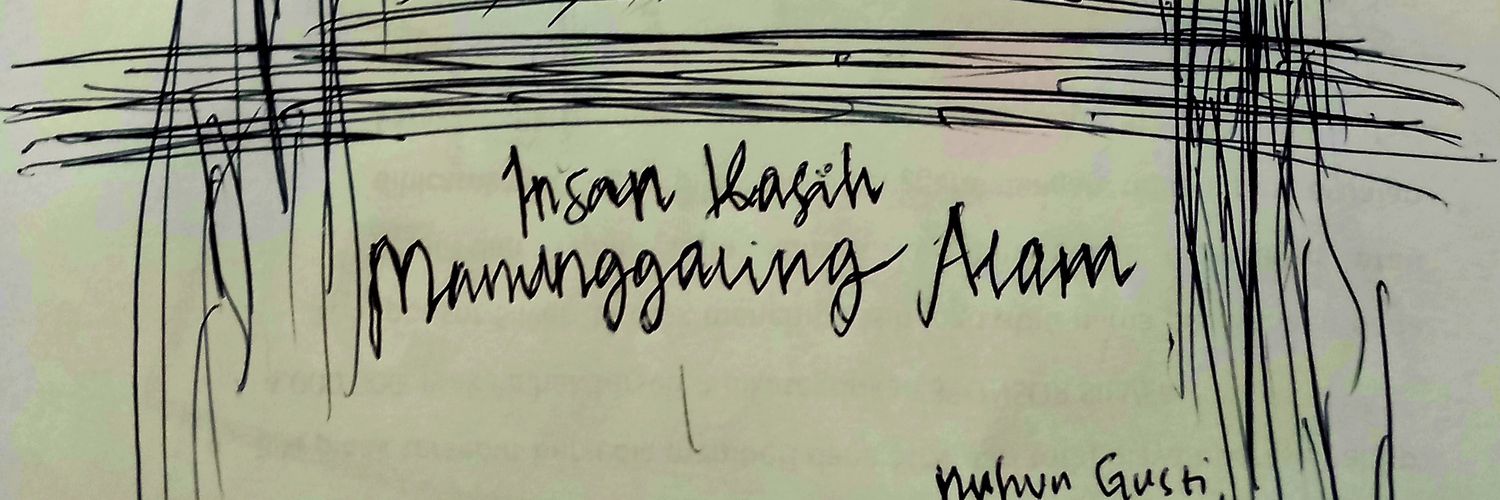 Insan Kasih
Manunggaling Alam
nuhun Gusti.